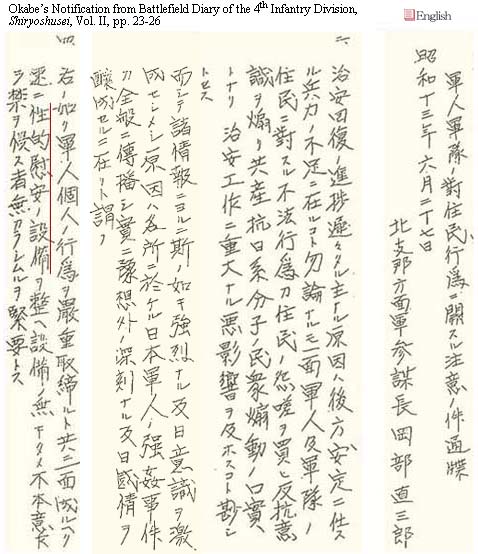 Okabe's Notification from Battlefield Diary of the 4th Infantry Division,
Shiryoshusei, Vol. II, pp. 23-26
English
軍人軍隊ノ對住民行爲ニ關スル注意ノ件通牒
昭和十三年六月二十七日
北支那方面軍參謀長 岡部直三郎
二、
治安回復ノ進捗遲々タル主ナル原因ハ後方安定ニ任ス
ル兵力ノ不足ニ在ルコト勿論ナルモ一面軍人及軍隊ノ
住民ニ對スル不法行爲カ住民ノ怨嗟ヲ買ヒ反抗意
識ヲ煽リ共産抗日系分子ノ民衆煽動ノ口實
トナリ 治安工作ニ重大ナル惡影響ヲ及ホスコト尠シ
トセス
而シテ諸情報ニヨルニ斯ノ如キ強烈ナル反日意識ヲ激
成セシメシ原因ハ各所ニ於ケル日本軍人ノ強姦事件
カ全般ニ傳播シ實ニ豫想外ノ深刻ナル反日感情ヲ
釀成セルニ在リト謂フ
四、
右ノ如ク軍人個人ノ行爲ヲ嚴重取締ルト共ニ一面成ルヘク
速ニ性的慰安ノ設備ヲ整ヘ設備ノ無キタメ不本意乍
ラ禁ヲ侵ス者無カラシムルヲ緊要トス